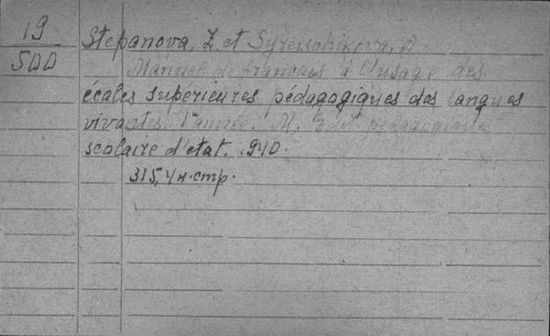 19
500
Stepanova, Z. et Syreischikova, A.
Manuel de francais à l'usage des
écoles supérieures pédagogiques des langues
vivantes. 1re année. M. Edit pédagogique
scolaire d'état. 940.
315, 4 н. стр.